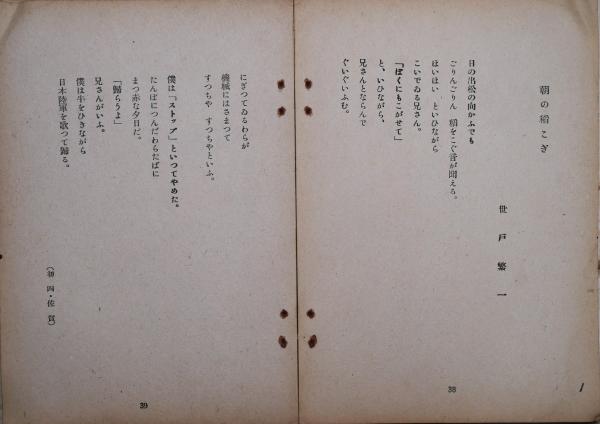 朝の稻こぎ
世戸繁一
日の出松の向かふでも
ごりんごりん 稻をこぐ音が聞える。
ほいほい といひながら
こいでゐる兄さん。
「ぼくにもこがせて」
と、いひながら、
兄さんとならんで
ぐいぐいふむ。
38
1
にぎつてゐるわらが
機械にはさまつて
すつちや すつちやといふ。
僕は「ストップ」といつてやめた。
たんぼにつんだわらたばに
まつ赤な夕日だ。
「歸らうよ」
兄さんがいふ。
僕は牛をひきながら
日本陸軍を歌つて歸る。
（初四・佐賀）
39